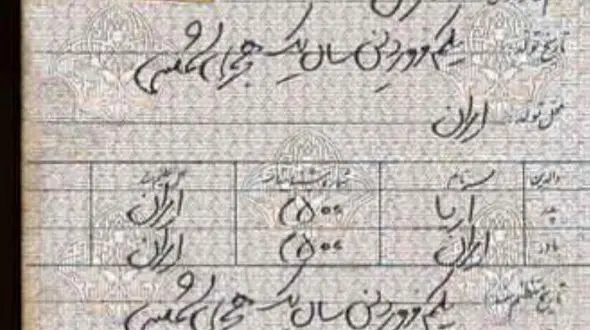 تاریخ تولد: یکم فروردین سال یک هجری شمسی
محل تولد: ایران
والدین نام شماره شناسنامه
پدر آریا ۲۵۰۰ ایران
مادر ایران ۲۵۰۰ ایران
تاریخ تنظیم سند: یکم فروردین سال یک هجری شمسی